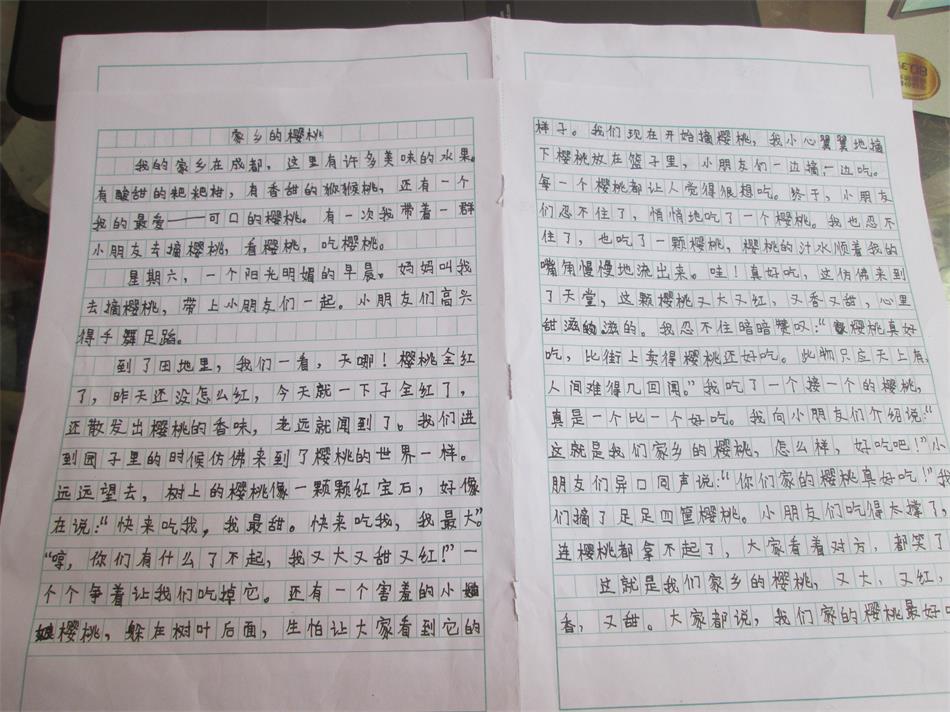 家乡的樱桃
我的家乡在成都，这里有许多美味的水果。
有酸甜的粑粑柑，有香甜的猕猴桃，还有一个
我的最爱——可口的樱桃。有一次我带着一群
小朋友去摘樱桃，看樱桃，吃樱桃。
星期六，一个阳光明媚的早晨。妈妈叫我
去摘樱桃，带上小朋友们一起。小朋友们高兴
得手舞足蹈。
到了田地里，我们一看，天哪！樱桃全红
了，昨天还没怎么红，今天就一下子全红了，
还散发出樱桃的香味，老远就闻到了。我们进
到园子里的时候仿佛来到了樱桃的世界一样。
远远望去，树上的樱桃像一颗颗红宝石，好像
在说：“快来吃我，我最甜。快来吃我，我最大。”
“哼，你们有什么了不起，我又大又甜又红！”一
个个争着让我们吃掉它。还有一个害羞的小姑
娘樱桃，躲在树叶后面，生怕让大家看到它的
样子。我们现在开始摘樱桃，我小心翼翼地摘
下樱桃放在篮子里，小朋友们一边摘一边吃。
每一个樱桃都让人觉得很想吃。终于，小朋友
们忍不住了，悄悄地吃了一个樱桃。我也忍不
住了，也吃了一颗樱桃，樱桃的汁水顺着我的
嘴角慢慢地流出来。哇！真好吃，这仿佛来到
了天堂，这颗樱桃又大又红，又香又甜，心里
甜滋滋的。我忍不住暗暗赞叹：“樱桃真好
吃，比街上卖得樱桃还好吃。此物只应天上有，
人间难得几回闻。”我吃了一个接一个的樱桃，
真是一个比一个好吃。我向小朋友们介绍说：“
这就是我们家乡的樱桃，怎么样，好吃吧！”小
朋友们异口同声说：“你们家的樱桃真好吃！”我
们摘了足足四筐樱桃。小朋友们吃得太撑了，
连樱桃都拿不起了，大家看着对方，都笑了
这就是我们家乡的樱桃，又大、又红、
香，又甜。大家都说，我们家的樱桃最好